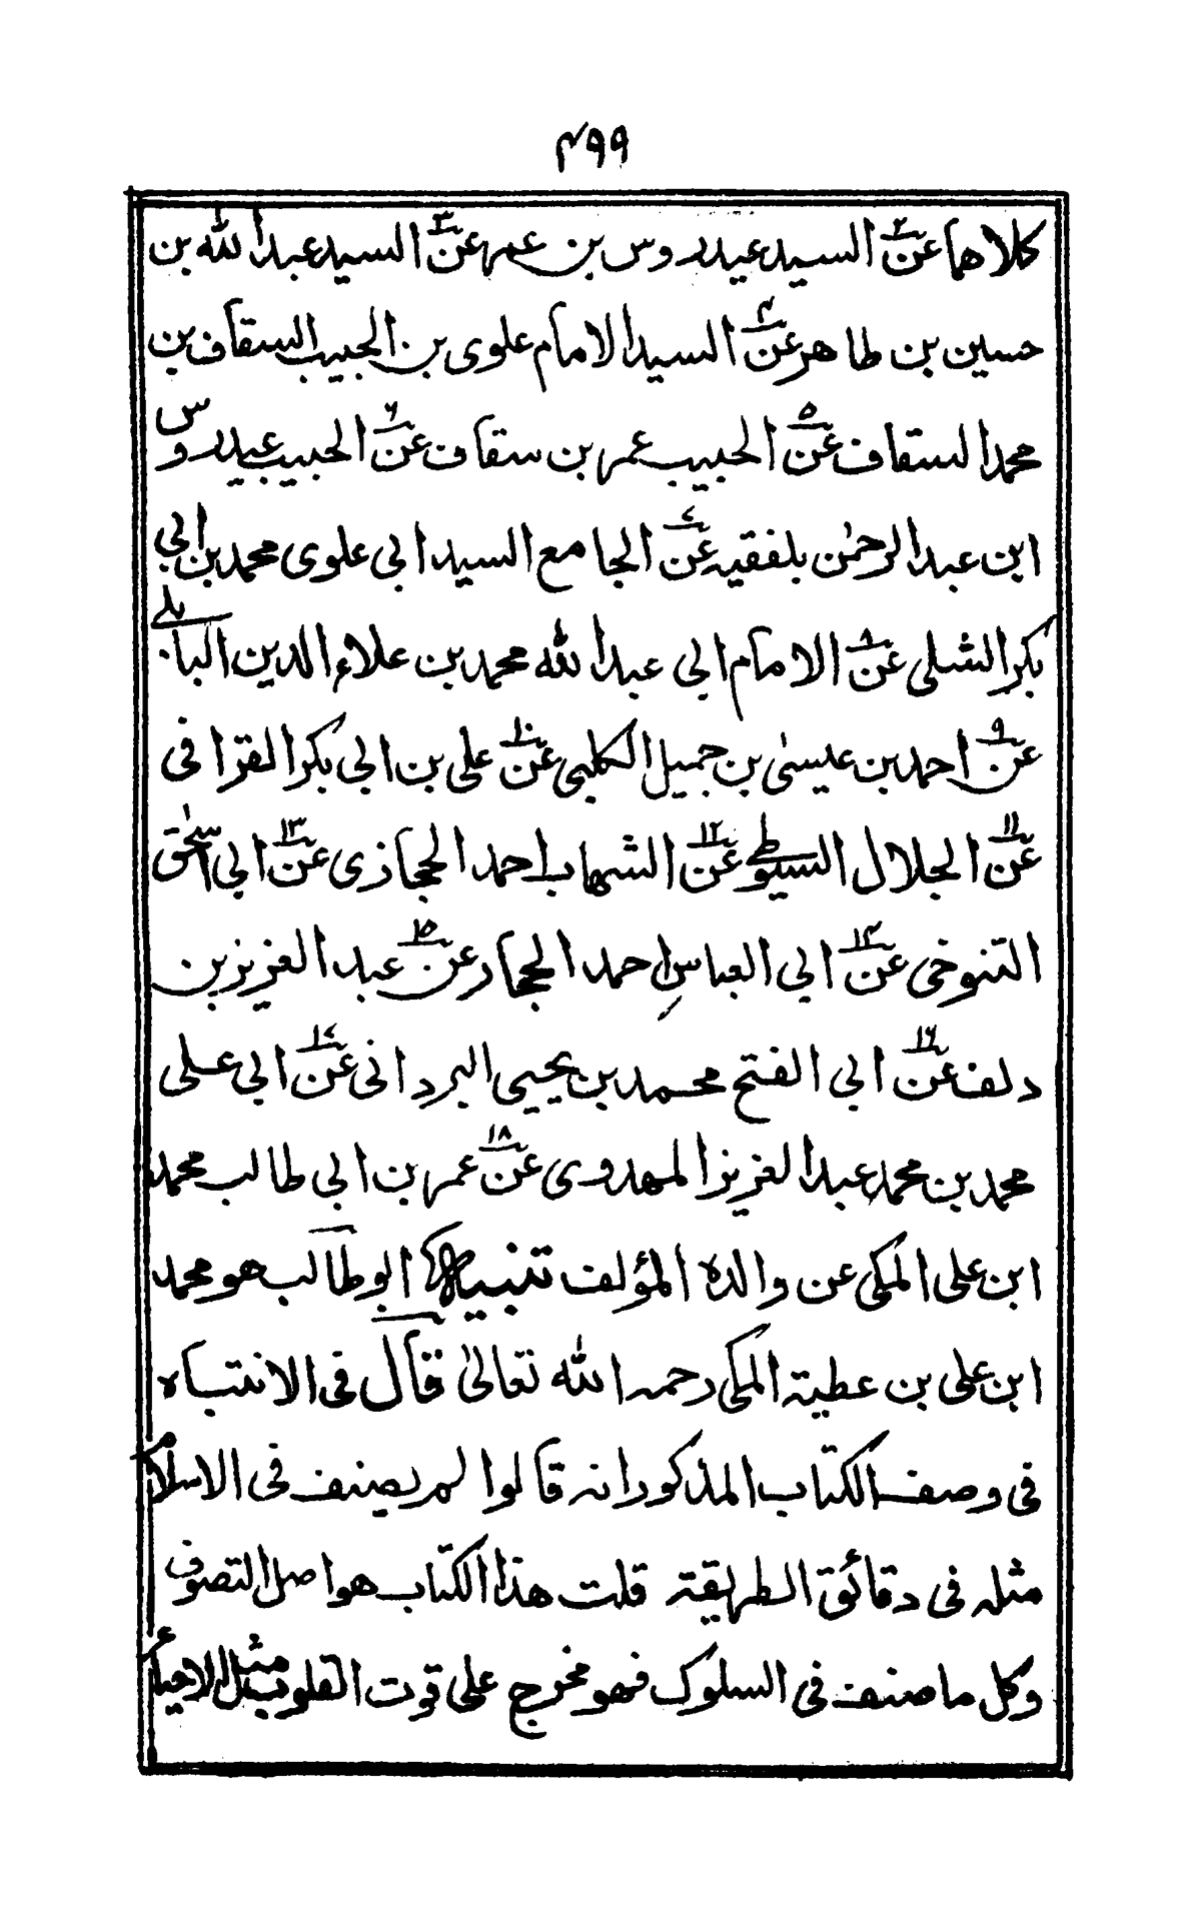 ۴۹۹
كلاهما عن۲ السيد عيدروس بن عمر عن۳ السيد عبد الله بن
حسين بن طاهر عن۴ السيد الامام علوى بن الحبيب السقاف بن
محمد السقاف عن۵ الحبيب عمر بن سقاف عن۶ الحبيب عيدروس
ابن عبد الرحمٰن بلفقيه عن۷ الجامع السيد ابي علوى محمد بن ابي
بكر الشلى عن۸ الامام ابي عبد الله محمد بن علاء الدين البابلى
عن۹ احمد بن عيسىٰ بن جميل الكلبى عن۱۰ على بن ابي بكر القرافى
عن۱۱ الجلال السيوطى عن۱۲ الشهاب احمد الحجازى عن۱۳ ابي اسحٰق
التنوخى عن۱۴ ابي العباس احمد الحجار عن۱۵ عبد العزيز بن
دلف عن۱۶ ابي الفتح محمد بن يحيى البردانى عن۱۷ ابي على
محمد بن محمد عبد العزيز المهدوى عن۱۸ عمر بن ابي طالب محمد
ابن على المكى عن والده المؤلف تنبيه ابو طالب هو محمد
ابن على بن عطية المكى رحمه الله تعالىٰ قال فى الانتباه
فى وصف الكتاب المذكور انه قالوا لم يصنف فى الاسلام
مثله فى دقائق الطريقة قلت هذا الكتاب هو اصل التصوف
وكل ما صنف فى السلوك فهو مخرج على قوت القلوب مثل الاحياء